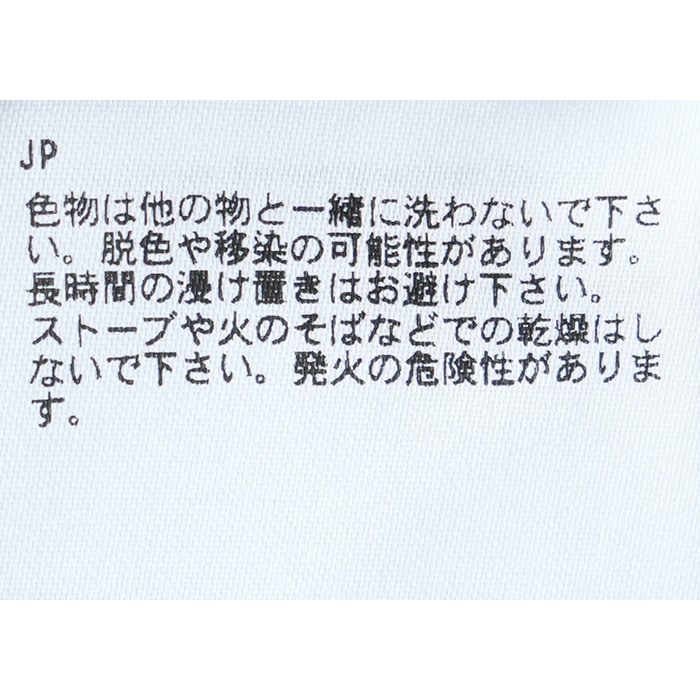 JP
色物は他の物と一緒に洗わないで下さ
い。脱色や移染の可能性があります。
長時間の浸け置きはお避け下さい。
ストーブや火のそばなどでの乾燥はし
ないで下さい。発火の危険性がありま
す。